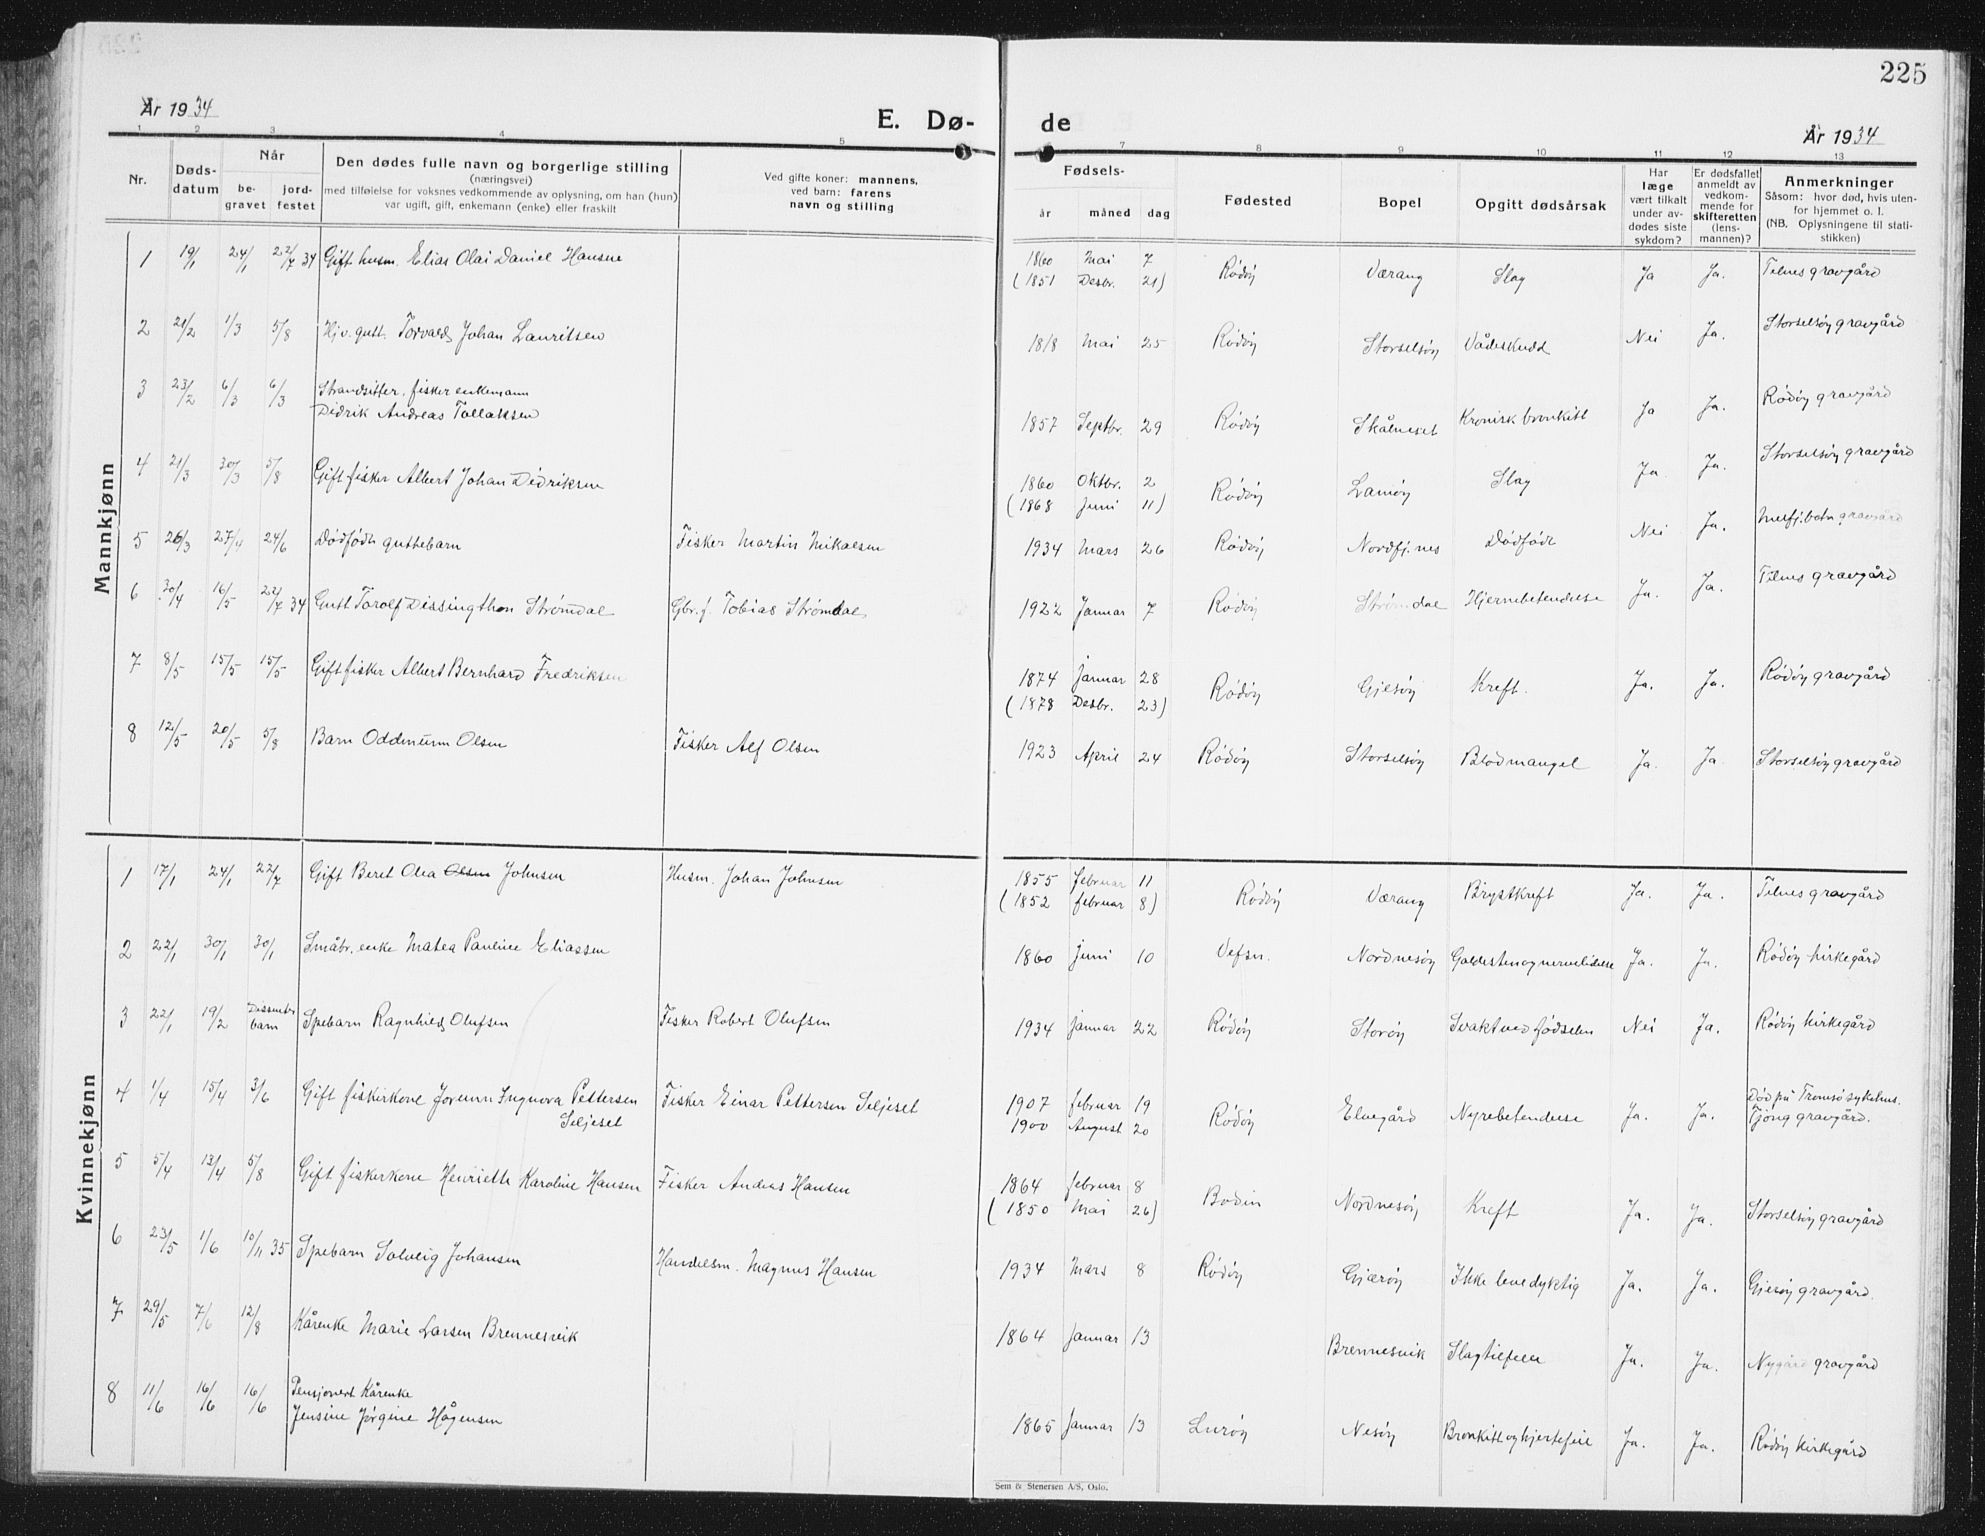 225
År 1934
E. Dø-
de
År 1934
1 2 3 4 5 7 8 9 10 11 12 13
Nr.
Døds-
datum
Når
be-
gravet
jord-
festet
Den dødes fulle navn og borgerlige stilling
(næringsvei)
med tilføielse for voksnes vedkommende av oplysning, om han (hun)
var ugift, gift, enkemann (enke) eller fraskilt
Ved gifte koner: mannens,
ved barn: farens
navn og stilling
Fødsels-
år måned dag
Fødested
Bopel
Opgitt dødsårsak
Har
læge
vært tilkalt
under av-
dødes siste
sykdom?
Er dødsfallet
anmeldt av
vedkom-
mende for
skifteretten
(lens-
mannen)?
Anmerkninger
Såsom: hvor død, hvis uten-
for hjemmet o. l.
(NB. Oplysningene til stati-
stikken)
Mannkjønn
1 19/1 24/1 22/7 34 Gift husm. Elias Olai Daniel Hansen 1860 Mai 7 Rödöy Værang Slag Ja Ja. Tilnes gravgård
(1851 Desbr. 21)
2 21/2 1/3 5/8 Hjv. gutt. Torvald Johan Lauritsen 1818 Mai 25 Rödöy Storselsöy Vådeskudd Nei Ja. Storselsöy gravgård
3 23/2 6/3 6/3 Strandsitter, fisker enkemann
Didrik Andreas Tollaksen 1857 Septbr. 29 Rödöy Skålneset Kronisk bronkitt Ja Ja. Rödöy gravgård
4 21/3 30/3 5/8 Gift fisker Albert Johan Didriksen 1860 Oktbr. 2 Rödöy Slag Ja Ja. Storselsöy gravgård
(1868 Juni 11)
5 26/3 27/4 24/6 Dödfödt guttebarn Fisker Martin Mikalsen 1934 Mars 26 Rödöy Nordfj.nes Dödfödt Nei Ja. gravgård
6 30/4 16/5 22/7 34 Gutt Torolf Dissingthon Strömdal Gbr.f. Tobias Strömdal 1922 Januar 7 Rödöy Strömdal Hjernebetendelse Ja. Ja. Tilnes gravgård
7 8/5 15/5 15/5 Gift fisker Albert Bernhard Fredriksen 1874 Januar 28 Rödöy Gjesöy Kreft. Ja. Ja. Rödöy gravgård
(1878 Desbr. 23)
8 12/5 20/5 5/8 Barn Oddmunn Olsen Fisker Alf Olsen 1923 April 24 Rödöy Storselsöy Blodmangel Ja. Ja Storselsöy gravgård
Kvinnekjønn
1 17/1 24/1 22/7 Gift Beret Olea Olsen Johnsen Husm. Johan Johnsen 1855 februar 11 Rödöy Værang Brystkreft Ja. Ja. Tilnes gravgård
(1852 februar 8)
2 22/1 30/1 30/1 Småbr. enke Matea Pauline Eliassen 1860 Juni 10 Vefsn. Nordnesöy Galdesten og nervelidelse Ja. Ja. Rödöy kirkegård
3 22/1 19/2 Dissenter
barn Spebarn Ragnhild Olufsen Fisker Robert Olufsen 1934 Januar 22 Rödöy Storöy Svakt ved födselen Nei Ja. Rödöy kirkegård
4 1/4 15/4 3/6 Gift fiskerkone Jorunn Ingnora Pettersen
Seljeset Fisker Einar Pettersen Seljeset 1907 februar 19 Rödöy Elvegård Nyrebetendelse Ja. Ja. Död på Tromsö sykehus.
1900 August 20 Tjong gravgård.
5 5/4 13/4 5/8 Gift fiskerkone Henriette Karoline Hansen Fisker Andreas Hansen 1864 februar 8 Bodin Nordnesöy Kreft Ja. Ja. Storselsöy gravgård
(1850 Mai 26)
6 23/5 1/6 10/11 35 Spebarn Solveig Johansen Handelsm. Magnus Hansen 1934 Mars 8 Rödöy Gjæröy Ikke levedyktig Ja. Ja. Gjesöy gravgård.
7 29/5 7/6 12/8 Kårenke Marie Larsen Brennesvik 1864 Januar 13 Brennesvik Slagtilfelle Ja. Ja. Nygård gravgård
8 11/6 16/6 16/6 Pensjonert Kårenke
Jensine Jörgine Hågensen 1865 Januar 13 Luröy Nesöy Bronkitt og hjertefeil Ja. Ja. Rödöy kirkegård
Sem & Stenersen A/S, Oslo.